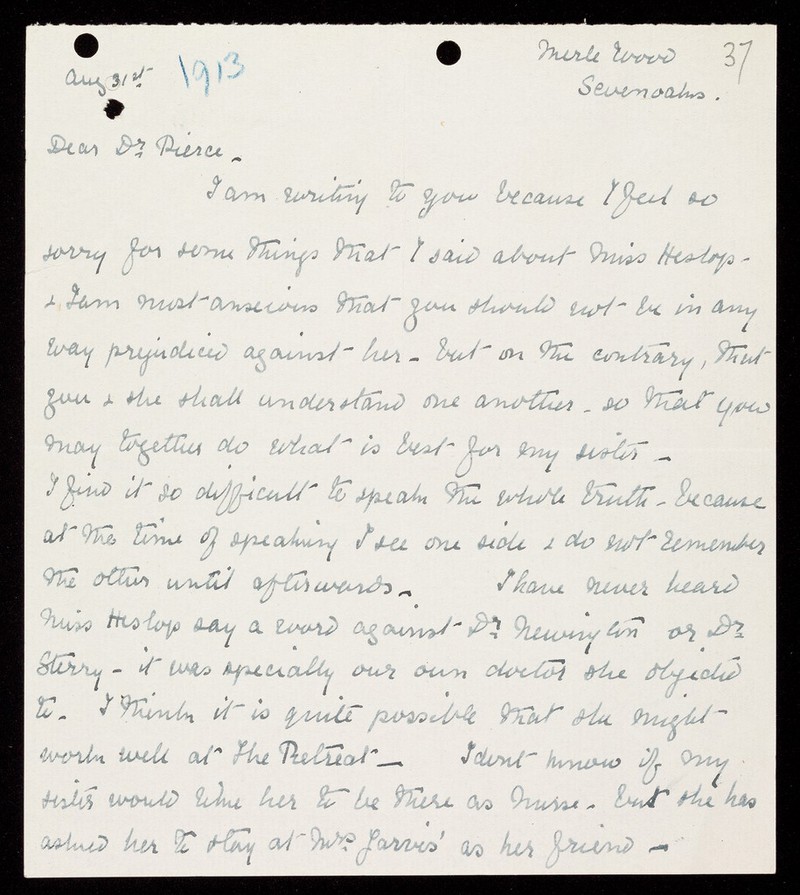 Merle Wood 37
Aug 31st 1913
Sevenoaks.
Dear Dr Pierce _
I am writing to you because I feel so
sorry for some things that I said about Miss Heslop -
& I am most anxious that you should not be in any
way prejudiced against her - but on the contrary, that
you & she shall understand one another - so that you
may together do what is best for my sister _
I find it so difficult to speak the whole truth - because
at the time of speaking I see one side & do not remember
the other until afterwards _ I have never heard
Miss Heslop say a word against Dr Newington or Dr
Sterry - it was specially our own doctor she objected
to - I think it is quite possible that she might
work well at The Retreat _ I dont know if my
sister would like her to be there as Nurse - but she has
asked her to stay at Mrs Jarvis' as her friend _